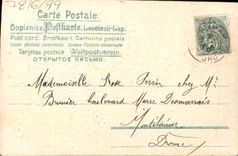 78/6/99
Carte Postale.
Dopisnice Postkarte Levelező-Lap.
Post card. Briefkaart. Cartolina postale
Union postale universelle. Unione postale universale.
Tarjetas postales Weltpostverein.
ОТКРЫТОЕ ПИСЬМО.
Mademoiselle Rose Perrin chez Mr
Brunier boulevard Marre Desmarrais
Montélimar
Drôme